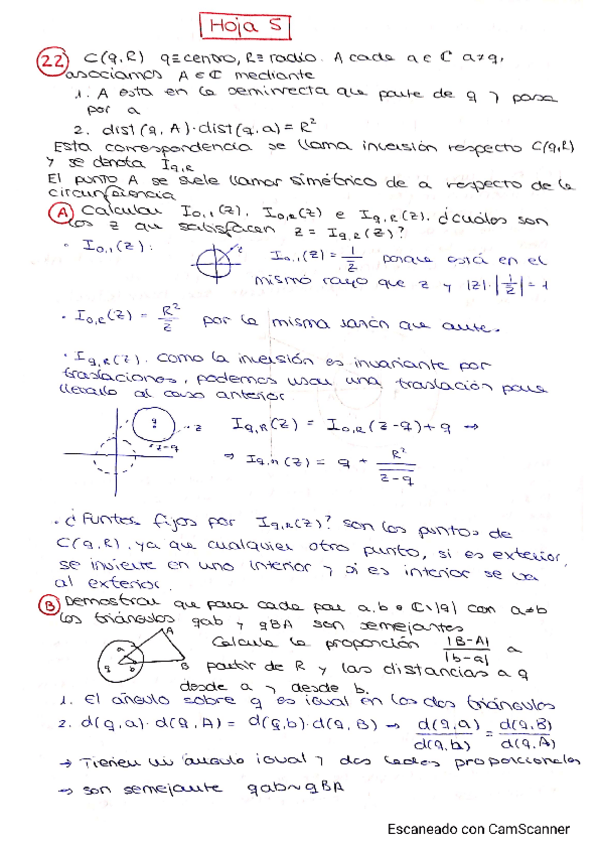 Hoja 5
22 C(q,R) q≡centro, R≡radio. A cada a∈ℂ a≠q,
asociamos A∈ℂ mediante
1. A esta en la semirrecta que parte de q y pasa
por a
2. dist(q,A)·dist(q,a)=R²
Esta correspondencia se llama inversión respecto C(q,R)
y se denota I_{q,R}
El punto A se suele llamar simétrico de a respecto de la
circunferencia
A Calcular I_{0,1}(z), I_{0,R}(z) e I_{q,R}(z). ¿cuáles son
los z que satisfacen z = I_{q,R}(z)?
· I_{0,1}(z):
z
I_{0,1}(z) = 1/z̄ porque está en el
mismo rayo que z y |z|·|1/z̄|=1
· I_{0,R}(z) = R²/z̄ por la misma razón que antes.
· I_{q,R}(z). Como la inversión es invariante por
traslaciones, podemos usar una traslación para
llevarlo al caso anterior
q z z-q
I_{q,R}(z) = I_{0,R}(z-q)+q →
→ I_{q,R}(z) = q + R²/\overline{z-q}
· ¿Puntos fijos por I_{q,R}(z)? son los puntos de
C(q,R), ya que cualquier otro punto, si es exterior,
se invierte en uno interior y si es interior se va
al exterior.
B Demostrar que para cada par a,b∈ℂ\{q} con a≠b
los triángulos qab y qBA son semejantes
Calcula la proporción |B-A|/|b-a| a
partir de R y las distancias a q
desde a y desde b.
A a q b B
1. El ángulo sobre q es igual en los dos triángulos
2. d(q,a)·d(q,A) = d(q,b)·d(q,B) → d(q,a)/d(q,b) = d(q,B)/d(q,A)
→ Tienen un ángulo igual y dos lados proporcionales
→ son semejante qab~qBA
Escaneado con CamScanner